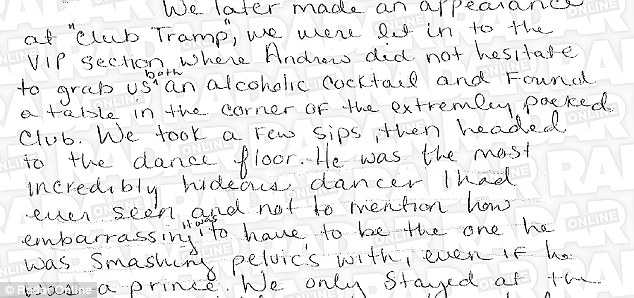 We later made an appearance
at "Club Tramp", we were let in to the
VIP section where Andrew did not hesitate
to grab us both an alcoholic cocktail and Found
a table in the corner of the extremley packed
Club. We took a few sips, then headed
to the dance floor. He was the most
incredibly hideous dancer I had
ever seen and not to mention how
embarrassing it was to have to be the one he
was smashing pelvics with, even if he
was a prince. We only stayed at the
© RadarOnline
RADAR ONLINE